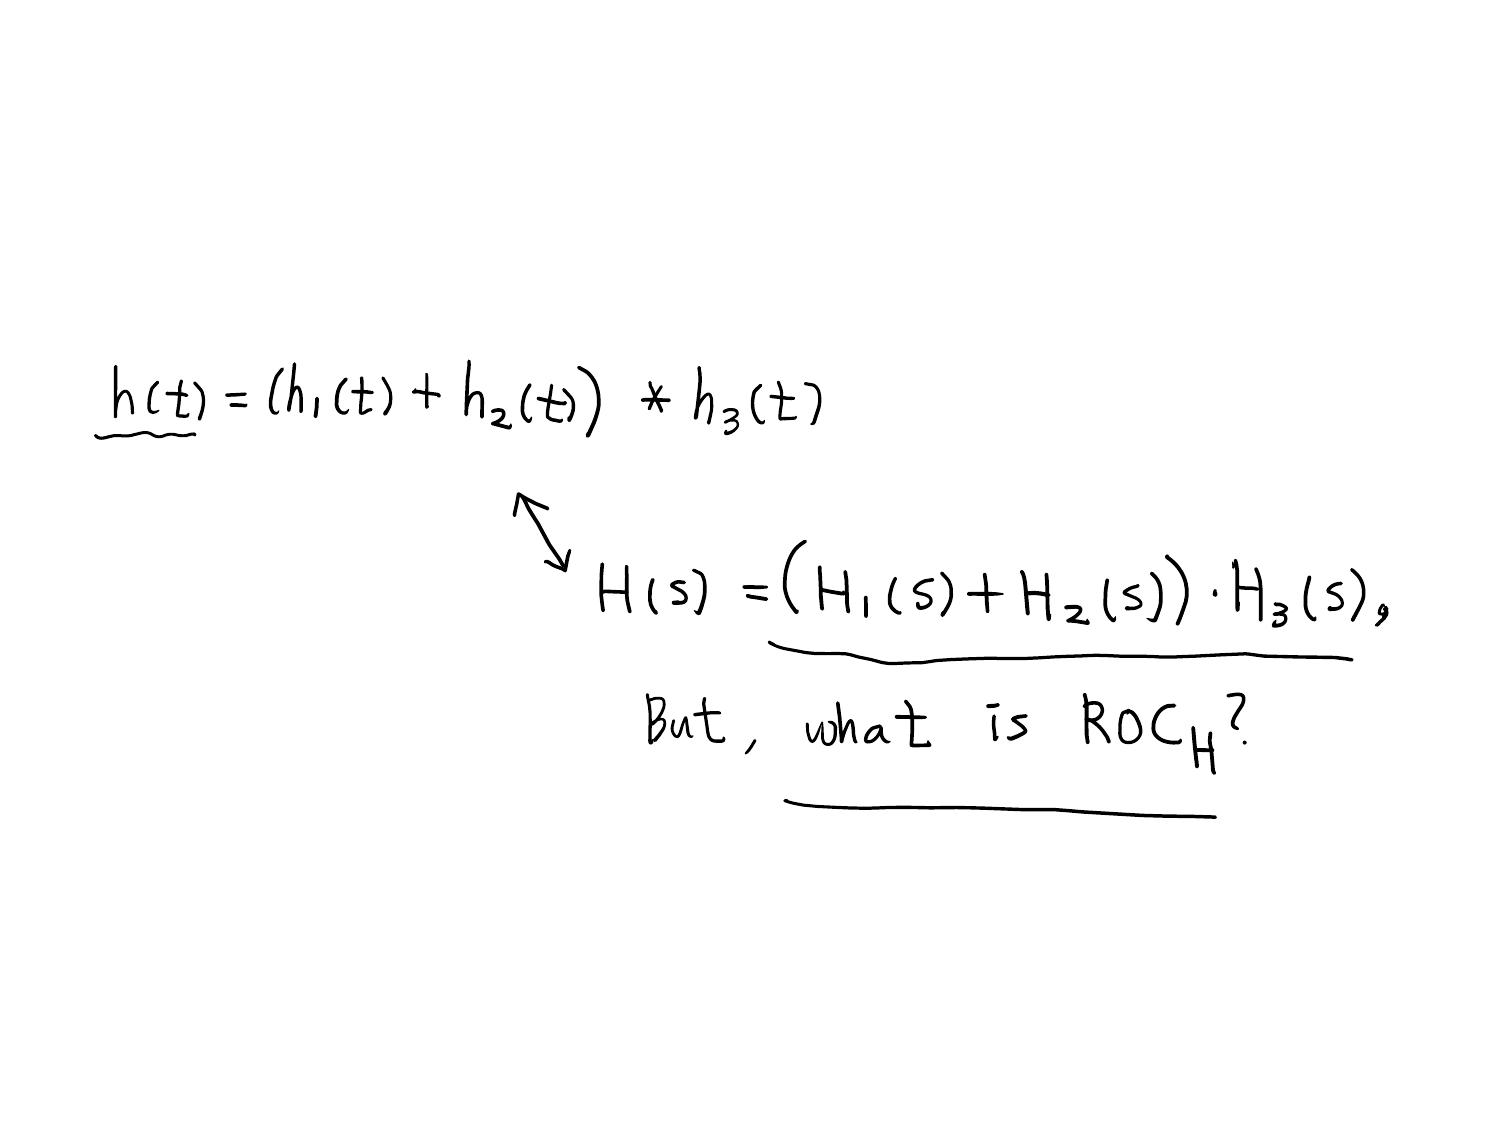 h(t) = (h₁(t) + h₂(t)) * h₃(t)
H(s) = (H₁(s) + H₂(s)) · H₃(s),
But, what is ROC_H?